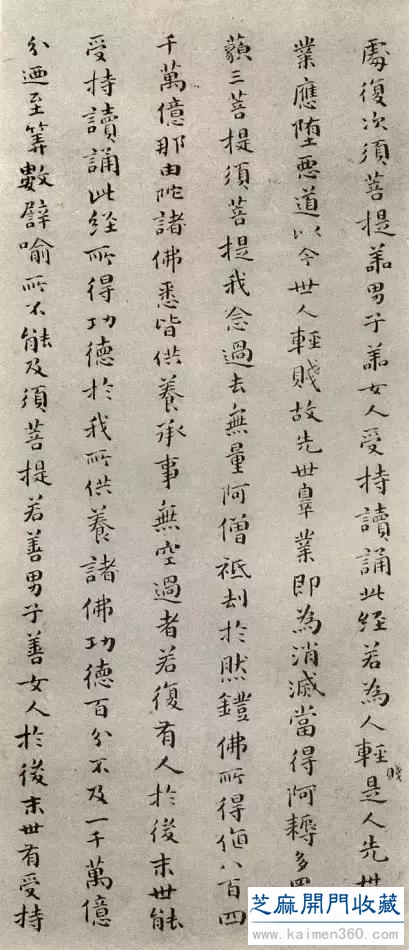 處復次須菩提善男子善女人受持讀誦此經若為人輕賤是人先世
業應墮惡道以今世人輕賤故先世辠業即為消滅當得阿耨多羅
藐三菩提須菩提我念過去無量阿僧祇刦於然鐙佛所得值八百四
千萬億那由陀諸佛悉皆供養承事無空過者若復有人於後末世能
受持讀誦此經所得功德於我所供養諸佛功德百分不及一千萬億
分迺至筭數譬喻所不能及須菩提若善男子善女人於後末世有受持
芝麻開門收藏
www.kaimen360.com